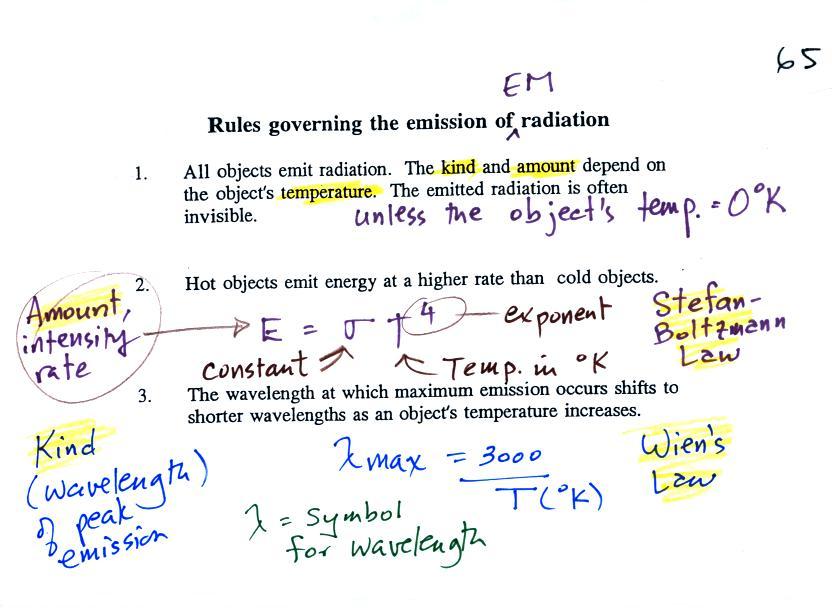 65
EM
Rules governing the emission of ^ radiation
1. All objects emit radiation. The kind and amount depend on
the object's temperature. The emitted radiation is often
invisible. unless the object's temp. = 0°K
2. Hot objects emit energy at a higher rate than cold objects.
Amount,
intensity
rate
E = σ T⁴
exponent
constant
Temp. in °K
Stefan-
Boltzmann
Law
3. The wavelength at which maximum emission occurs shifts to
shorter wavelengths as an object's temperature increases.
Kind
(wavelength)
of peak
emission
λ max = 3000
T(°K)
λ = symbol
for wavelength
Wien's
Law